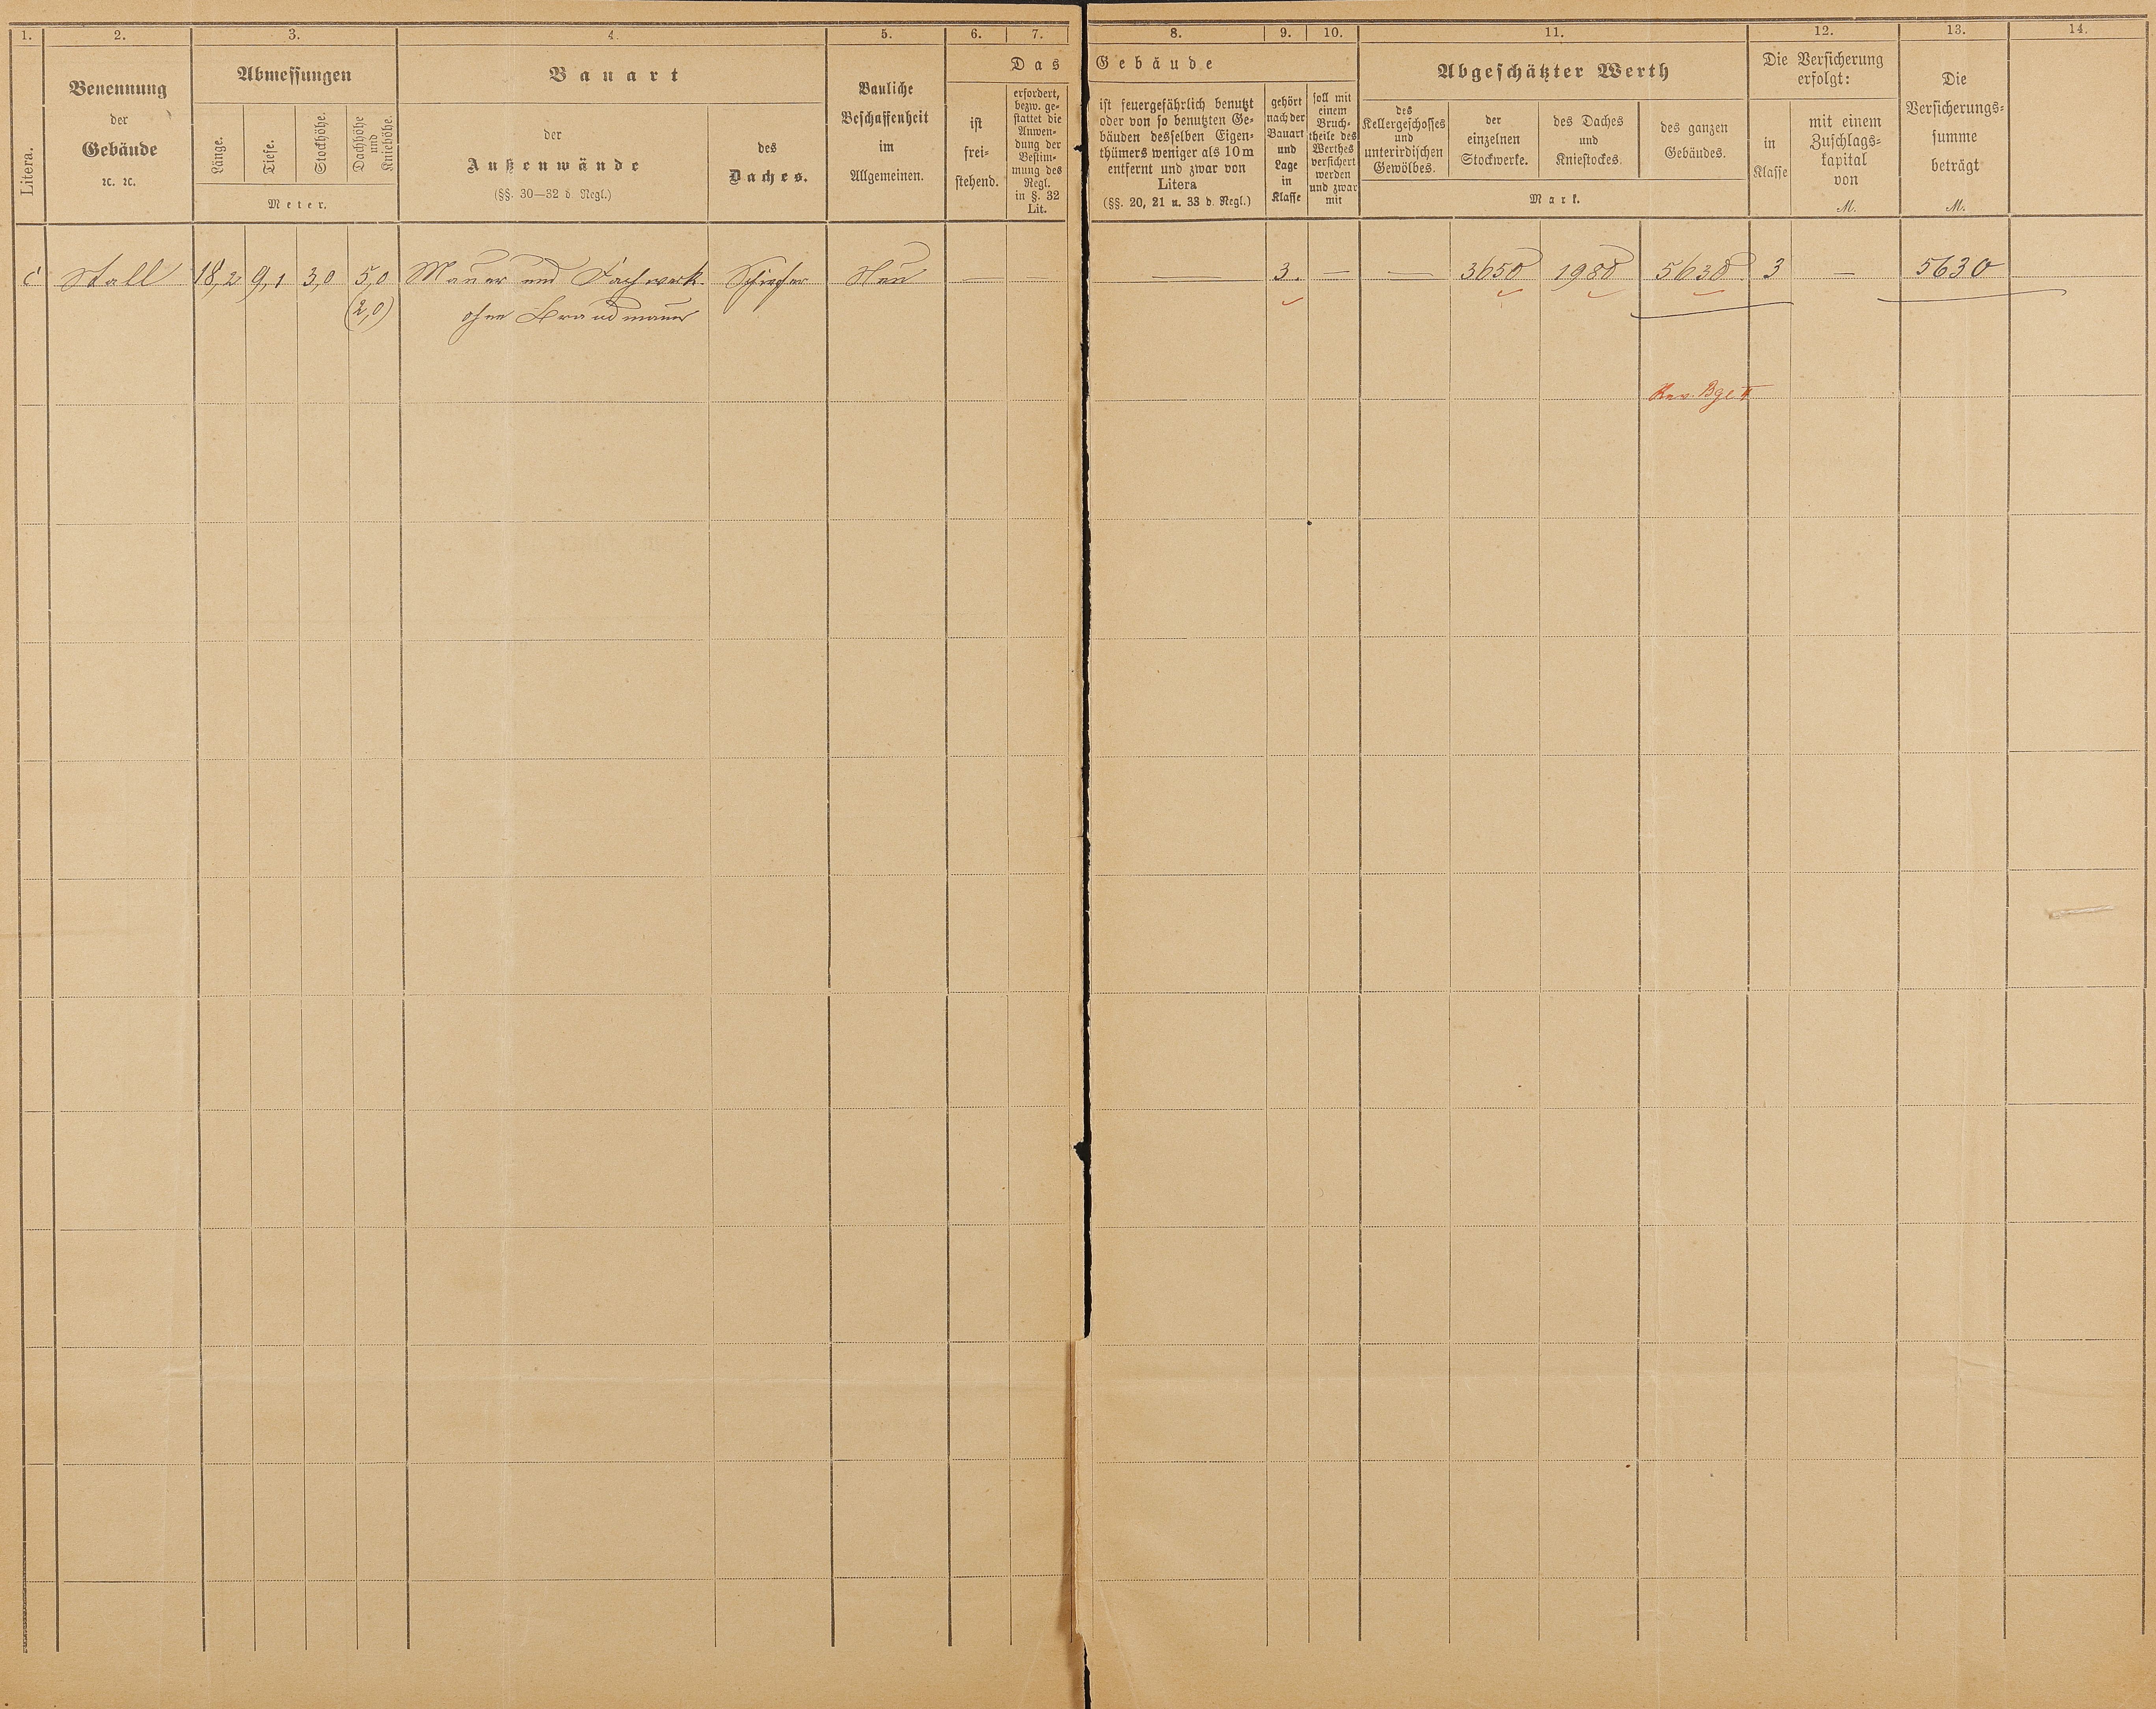 1. 2. 3. 4. 5. 6. 7. 8. 9. 10. 11. 12. 13. 14.
Litera.
Benennung
der
Gebäude
ꝛc. ꝛc.
Abmessungen
Länge.
Tiefe.
Stockhöhe.
Dachhöhe
und
Kniehöhe.
Meter.
Bauart
der
Außenwände
(§§. 30—32 d. Regl.)
des
Daches.
Bauliche
Beschaffenheit
im
Allgemeinen.
Das Gebäude
ist
frei-
stehend.
erfordert,
bezw. ge-
stattet die
Anwen-
dung der
Bestim-
mung des
Regl.
in §. 32
Lit.
ist feuergefährlich benutzt
oder von so benutzten Ge-
bäuden desselben Eigen-
thümers weniger als 10 m
entfernt und zwar von
Litera
(§§. 20, 21 u. 33 d. Regl.)
gehört
nach der
Bauart
und
Lage
in
Klasse
soll mit
einem
Bruch-
theile des
Werthes
versichert
werden
und zwar
mit
Abgeschätzter Werth
des
Kellergeschosses
und
unterirdischen
Gewölbes.
der
einzelnen
Stockwerke.
des Daches
und
Kniestockes.
des ganzen
Gebäudes.
Mark.
Die Versicherung
erfolgt:
in
Klasse
mit einem
Zuschlags-
kapital
von
M.
Die
Versicherungs-
summe
beträgt
M.
c Stall 18,2 9,1 3,0 5,0 Mauer und Fachwerk Schiefer Neu — — — 3. — — 3650 1980 5630 3 — 5630
(2,0) ohne Brandmauer
Rev. Bge II